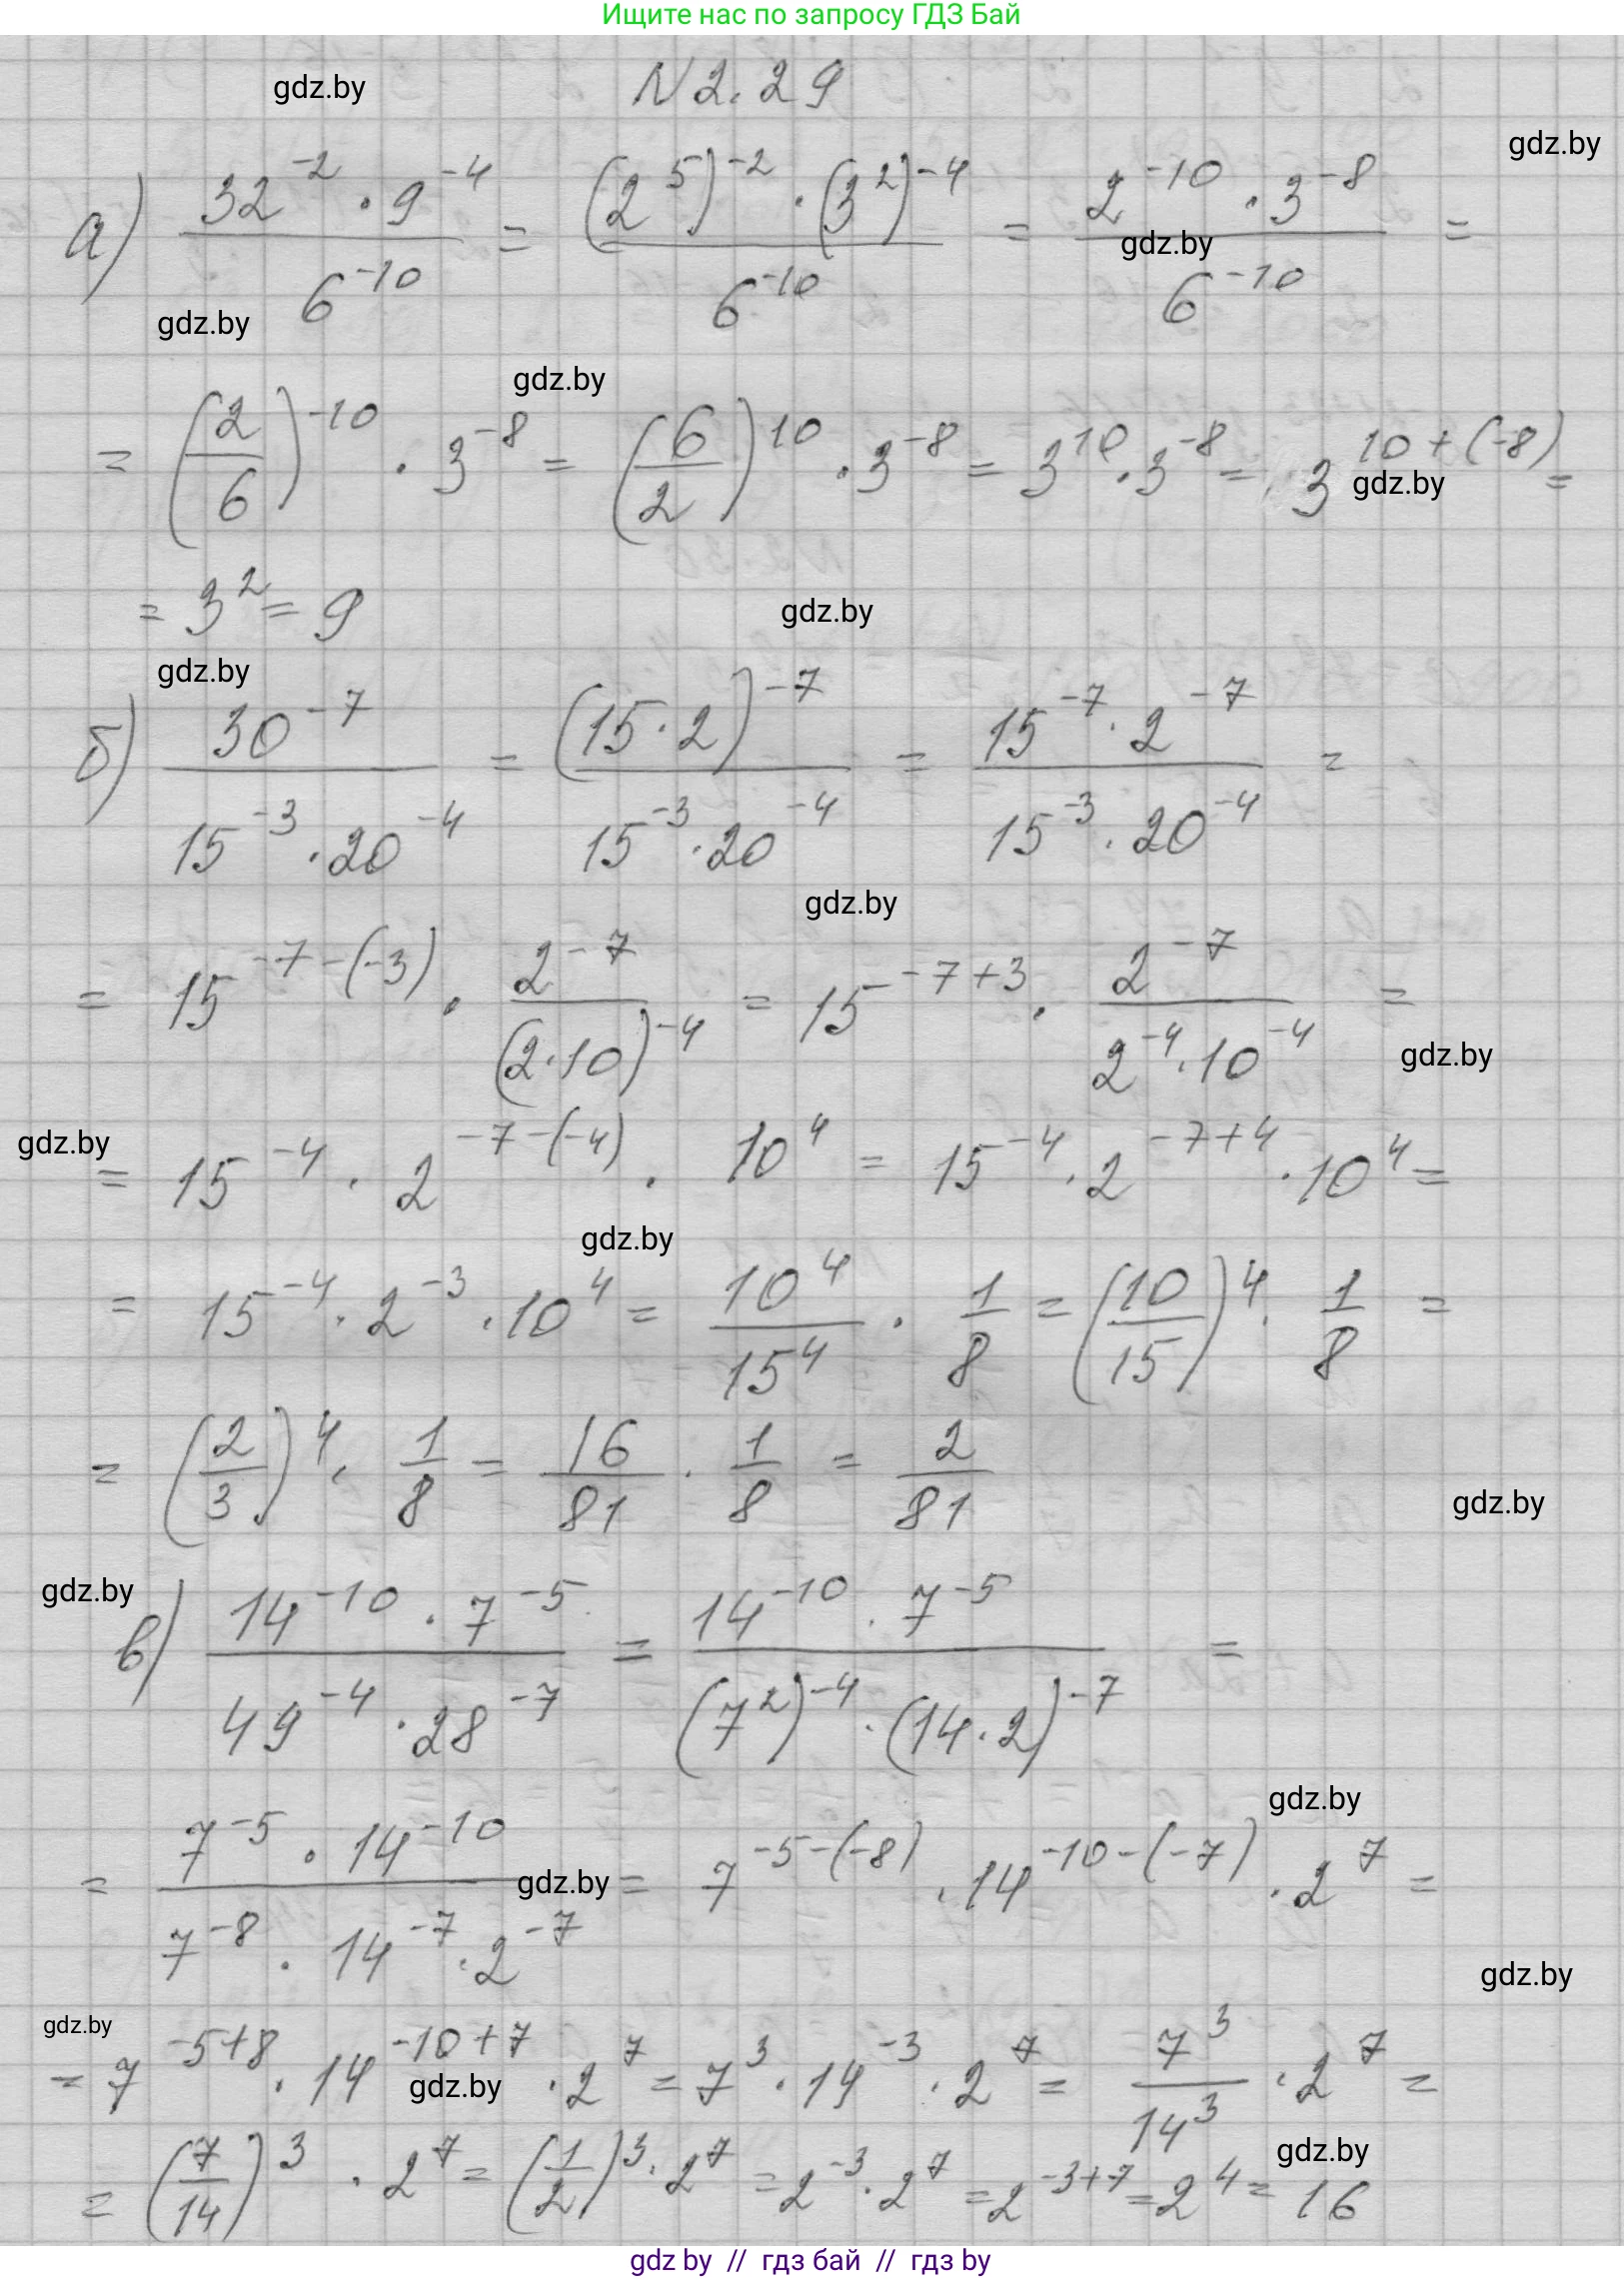 Ищите нас по запросу ГДЗ Бай
gdz.by
N2.29
gdz.by
а) 32^-2 · 9^-4 / 6^-10 = (2^5)^-2 · (3^2)^-4 / 6^-10 = 2^-10 · 3^-8 / 6^-10 =
gdz.by
gdz.by
gdz.by
= (2/6)^-10 · 3^-8 = (6/2)^10 · 3^-8 = 3^10 · 3^-8 = 3^10+(-8) =
gdz.by
= 3^2 = 9
gdz.by
gdz.by
б) 30^-7 / 15^-3 · 20^-4 = (15·2)^-7 / 15^-3 · 20^-4 = 15^-7 · 2^-7 / 15^-3 · 20^-4 =
gdz.by
= 15^-7-(-3) · 2^-7 / (2·10)^-4 = 15^-7+3 · 2^-7 / 2^-4 · 10^-4 =
gdz.by
gdz.by
= 15^-4 · 2^-7-(-4) · 10^4 = 15^-4 · 2^-7+4 · 10^4 =
gdz.by
= 15^-4 · 2^-3 · 10^4 = 10^4/15^4 · 1/8 = (10/15)^4 · 1/8 =
= (2/3)^4 · 1/8 = 16/81 · 1/8 = 2/81
gdz.by
gdz.by
в) 14^-10 · 7^-5 / 49^-4 · 28^-7 = 14^-10 · 7^-5 / (7^2)^-4 · (14·2)^-7 =
gdz.by
= 7^-5 · 14^-10 / 7^-8 · 14^-7 · 2^-7 = 7^-5-(-8) · 14^-10-(-7) · 2^7 =
gdz.by
gdz.by
gdz.by
= 7^-5+8 · 14^-10+7 · 2^7 = 7^3 · 14^-3 · 2^7 = 7^3/14^3 · 2^7 =
gdz.by
gdz.by
= (7/14)^3 · 2^7 = (1/2)^3 · 2^7 = 2^-3 · 2^7 = 2^-3+7 = 2^4 = 16
gdz by // гдз бай // гдз by